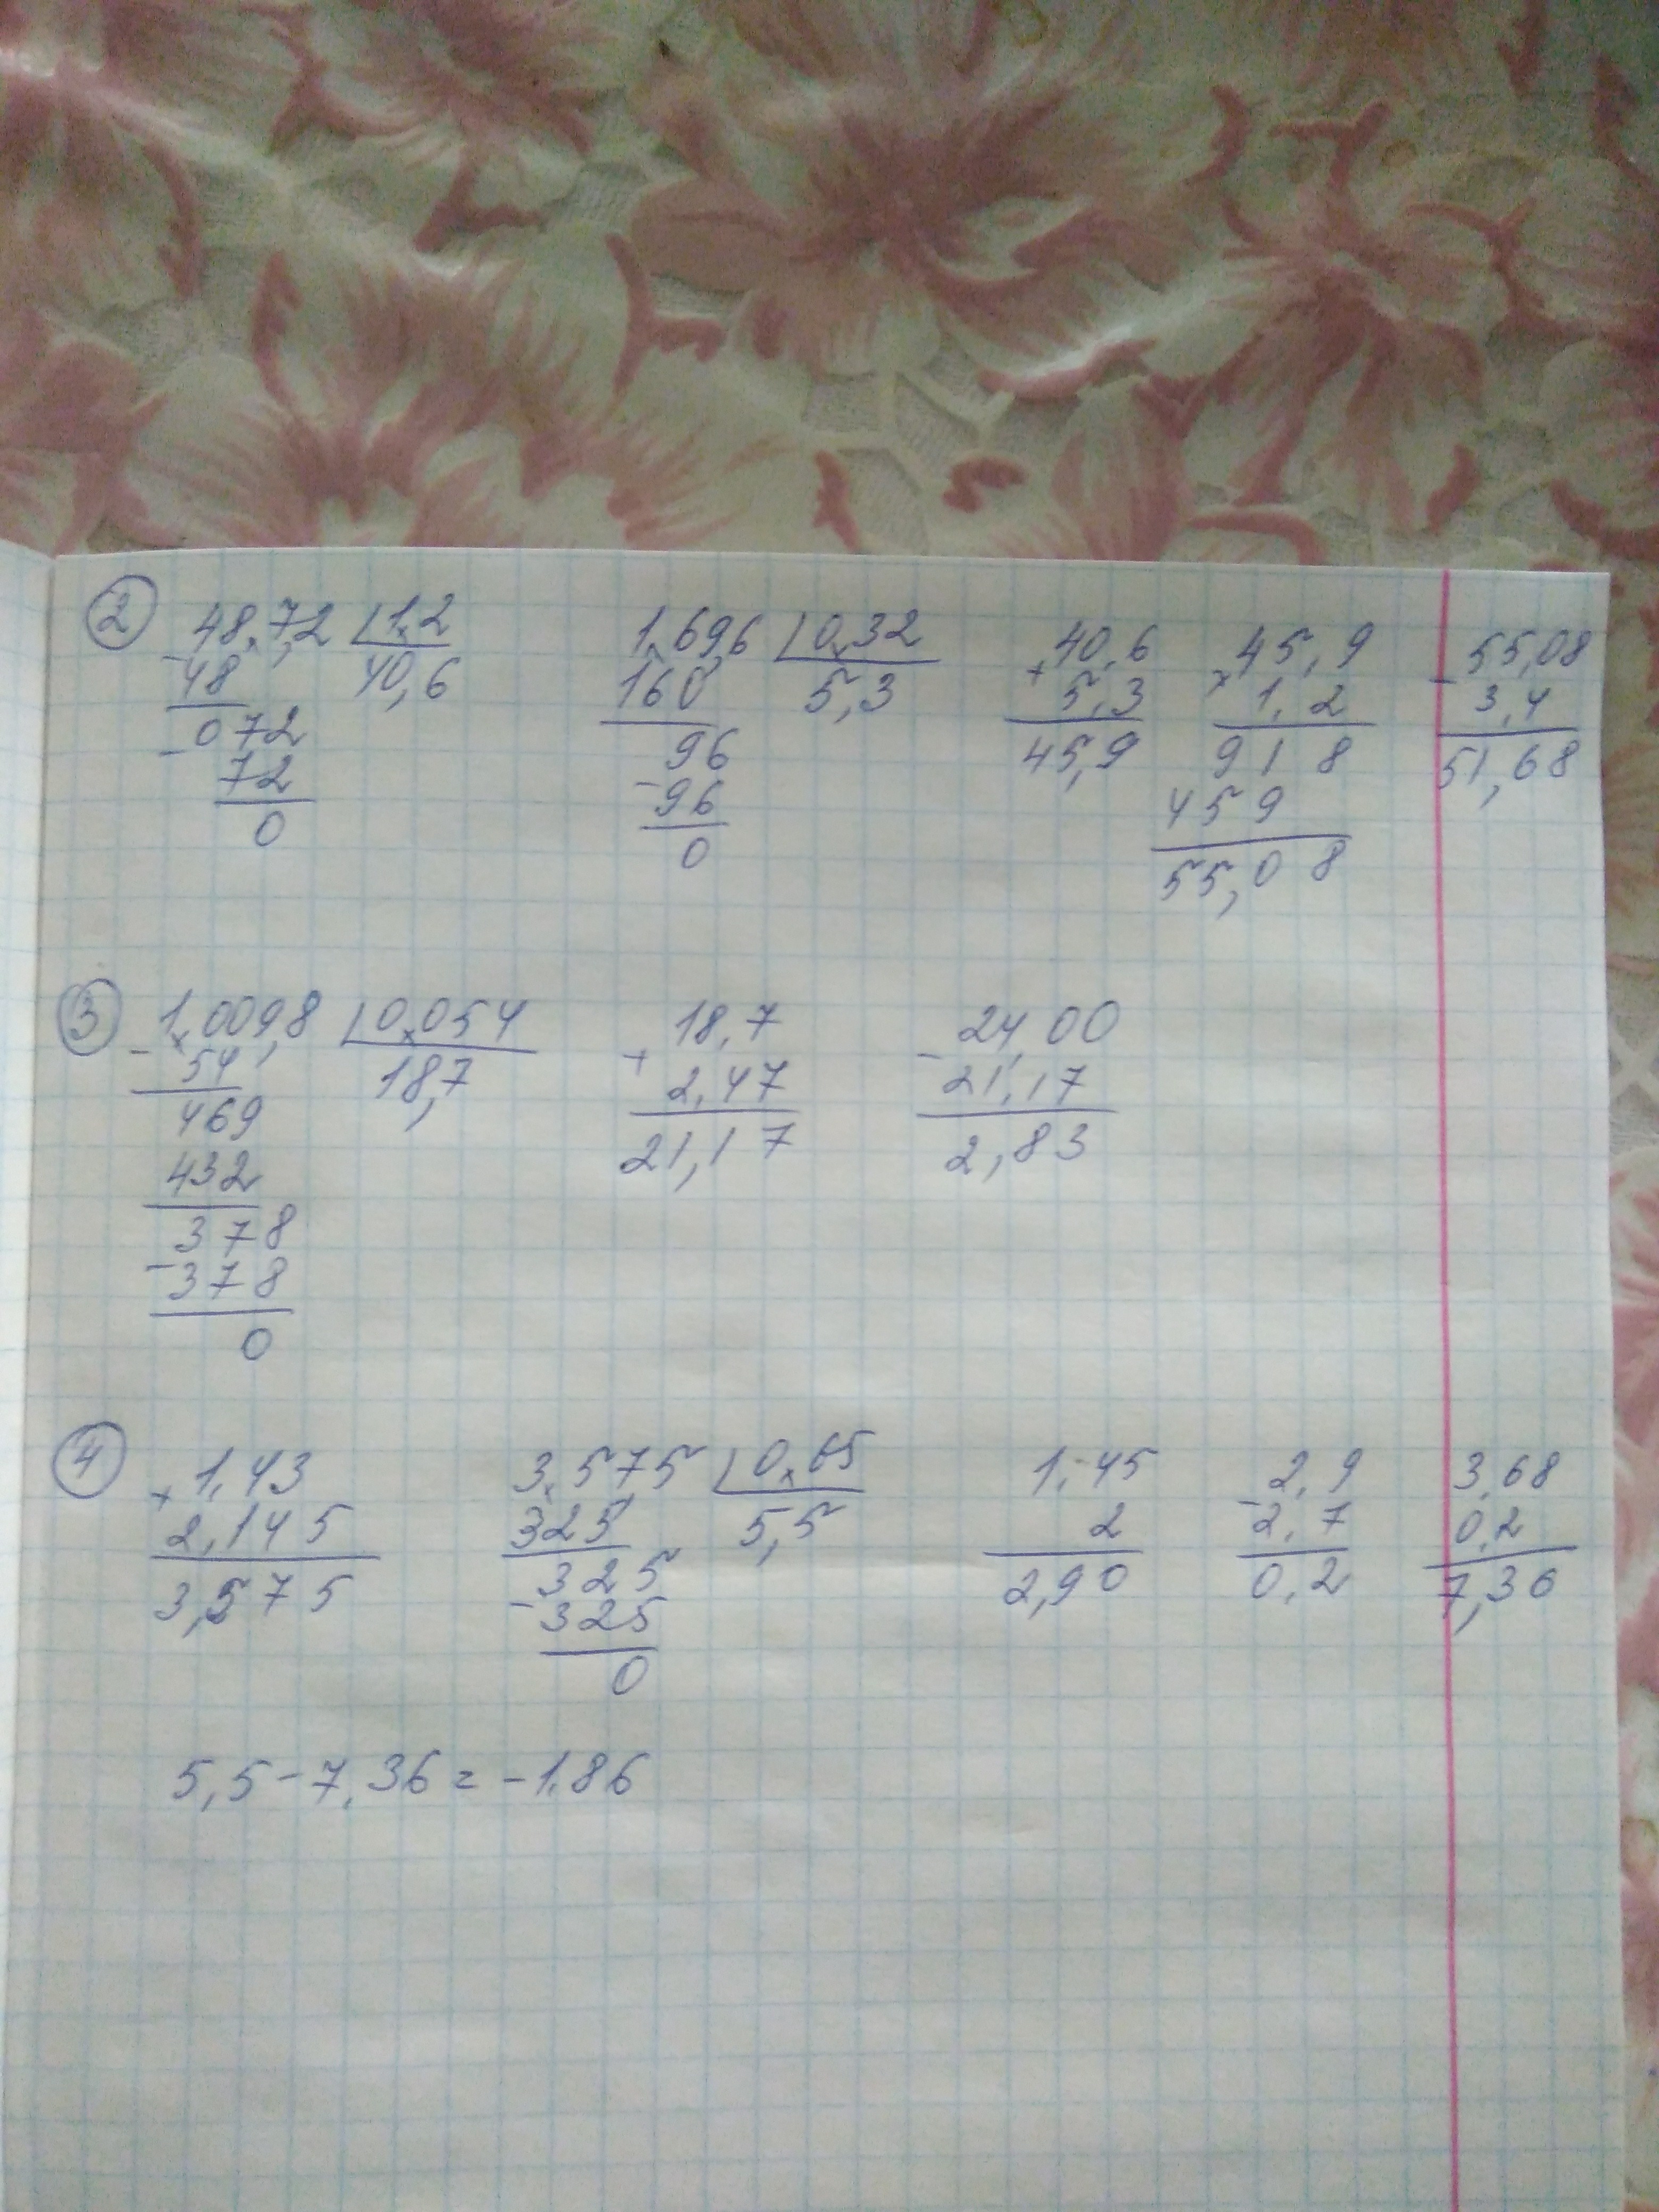 ② 48,7,2 1,2 1,69,6 0,32 40,6 45,9 55,08
- 48 40,6 160 5,3 + 5,3 × 1,2 - 3,4
- 072 96 45,9 918 51,68
72 - 96 459
0 0 55,08
③ 1,009,8 0,054 18,7 24,00
- 54 18,7 + 2,47 - 21,17
469 21,17 2,83
432
378
- 378
0
④ + 1,43 3,57,5 0,65 1,45 - 2,9 3,68
2,145 325 5,5 2 2,7 0,2
3,575 325 2,90 0,2 7,36
- 325
0
5,5-7,36=-1.86